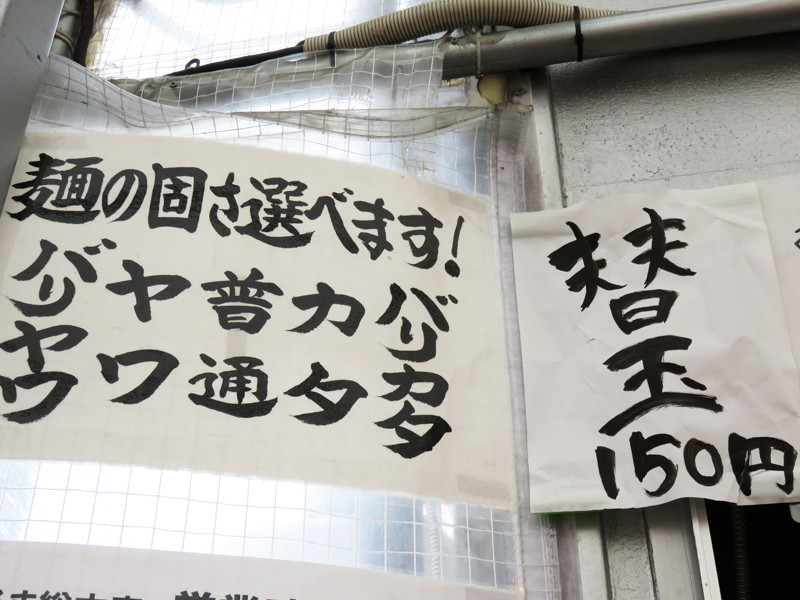 麺の固さ選べます!
バリカタ
カタ
普通
ヤワ
バリヤワ
替玉
150円